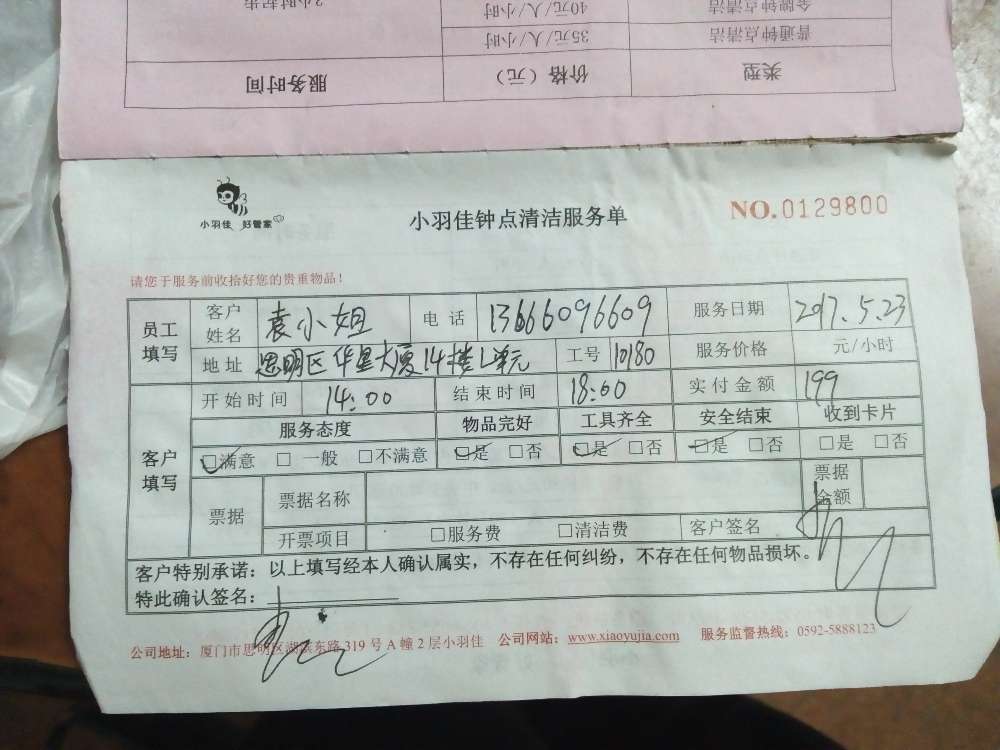 类型 价格（元） 服务时间
普通钟点清洁 35元/人/小时
金牌钟点清洁 40元/人/小时 3小时起步
小羽佳 好管家
小羽佳钟点清洁服务单
NO.0129800
请您于服务前收拾好您的贵重物品！
员工填写 客户姓名 袁小姐 电话 13666096609 服务日期 2017.5.23
地址 思明区华星大厦14楼L单元 工号 10180 服务价格 元/小时
客户填写 开始时间 14:00 结束时间 18:00 实付金额 199
服务态度 物品完好 工具齐全 安全结束 收到卡片
☑满意 □一般 □不满意 ☑是 □否 ☑是 □否 ☑是 □否 □是 □否
票据 票据名称 票据金额
开票项目 □服务费 □清洁费 客户签名
客户特别承诺：以上填写经本人确认属实，不存在任何纠纷，不存在任何物品损坏。
特此确认签名：
公司地址：厦门市思明区湖滨东路319号A幢2层小羽佳 公司网站：www.xiaoyujia.com 服务监督热线：0592-5888123